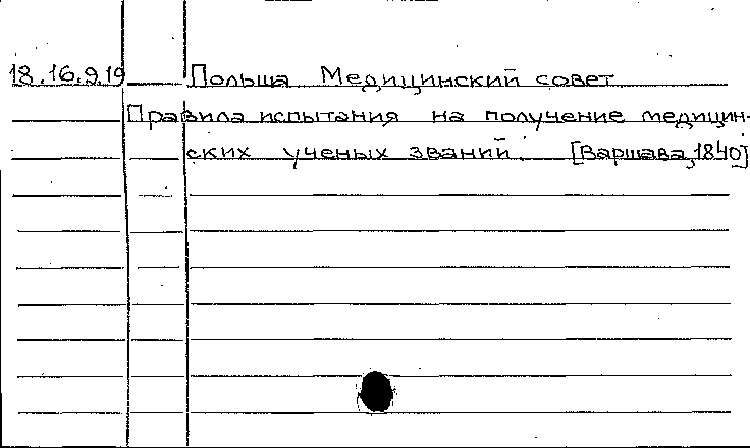 18.16.9.19 Польша Медицинский совет
Правила испытания на получение медицин-
ских ученых званий. [Варшава, 1840]